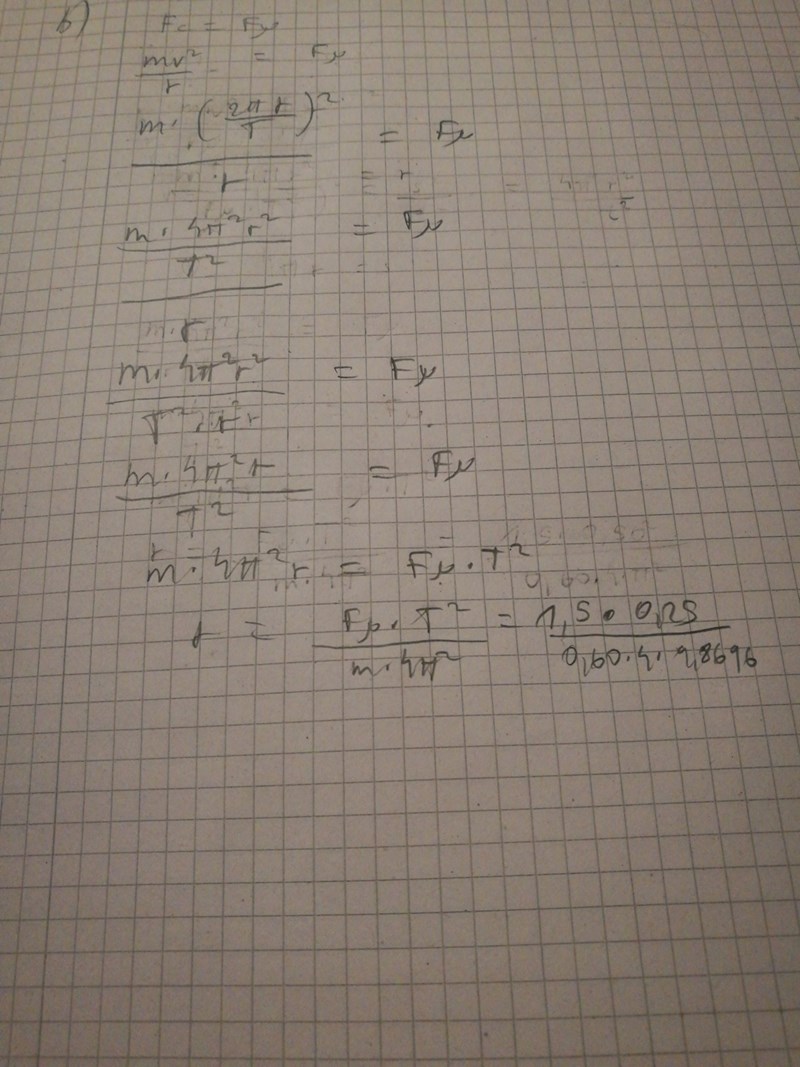 b) Fc = Fμ
mv²/r = Fμ
m·(2πr/T)²/r = Fμ
m·4π²r²/T²/r = Fμ
m·4π²r²/T²·r = Fμ
m·4π²r/T² = Fμ
m·4π²r = Fμ·T²
r = Fμ·T²/m·4π² = 1,5·0,25/0,60·4·9,8696